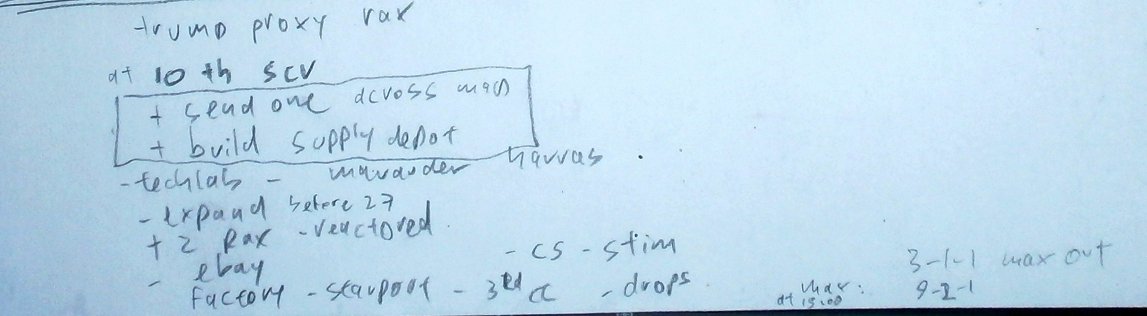 trump proxy rax
at 10th scv
+ send one across map
+ build supply depot
- techlab - marauder harras .
- expand before 27
+ 2 Rax - reactored.
- ebay - cs - stim
factory - starport - 3rd cc - drops.
3-1-1 max out
max: 9-2-1
at 15:00